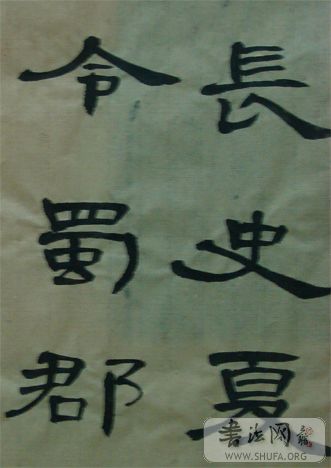 長史夏
令蜀郡
書法网
WWW.SHUFA.ORG